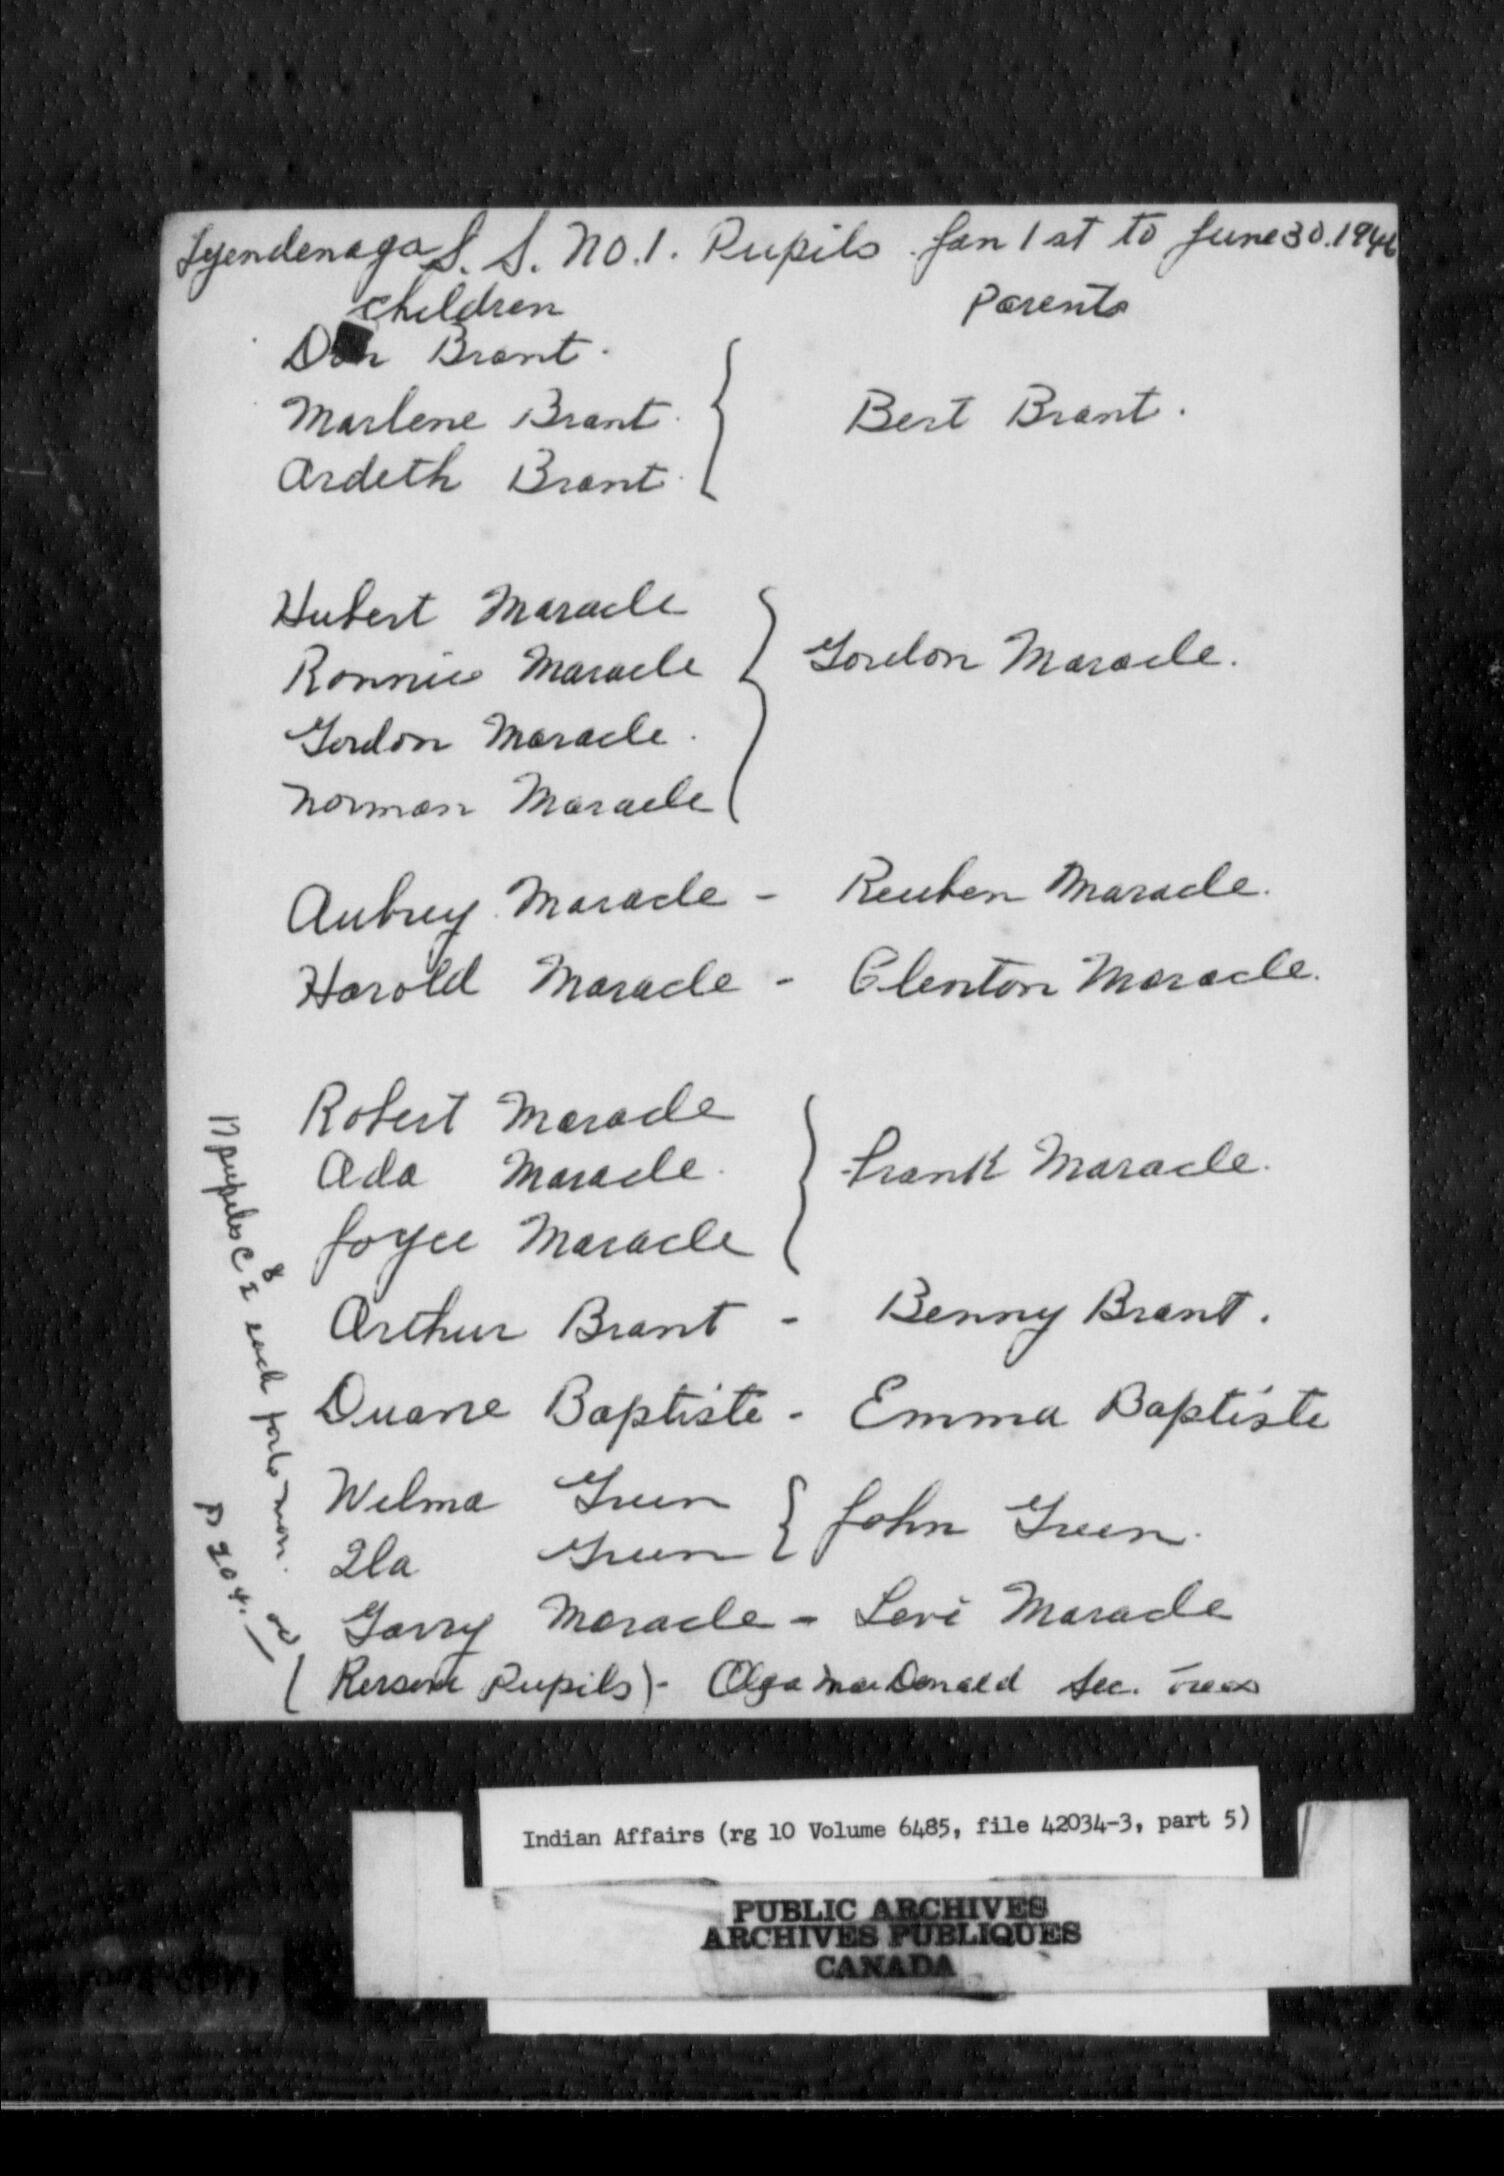 Tyendenaga S. S. No. 1. Pupils. Jan 1st to June 30. 1946
Children Parents
Don Brant.
Marlene Brant. Bert Brant.
Ardeth Brant.
Hubert Maracle
Ronnie Maracle Gordon Maracle.
Gordon Maracle.
Norman Maracle
Aubrey Maracle - Reuben Maracle.
Harold Maracle - Clenton Maracle.
Robert Maracle
Ada Maracle. Frank Maracle.
Joyce Maracle
Arthur Brant - Benny Brant.
Duane Baptiste - Emma Baptiste
Wilma Green John Green.
Ila Green
Garry Maracle - Levi Maracle
(Reserve Pupils) - Olga MacDonald Sec. Treas
17 pupils @ 2 each for 6 mon.
204.00
Indian Affairs (rg 10 Volume 6485, file 42034-3, part 5)
PUBLIC ARCHIVES
ARCHIVES PUBLIQUES
CANADA